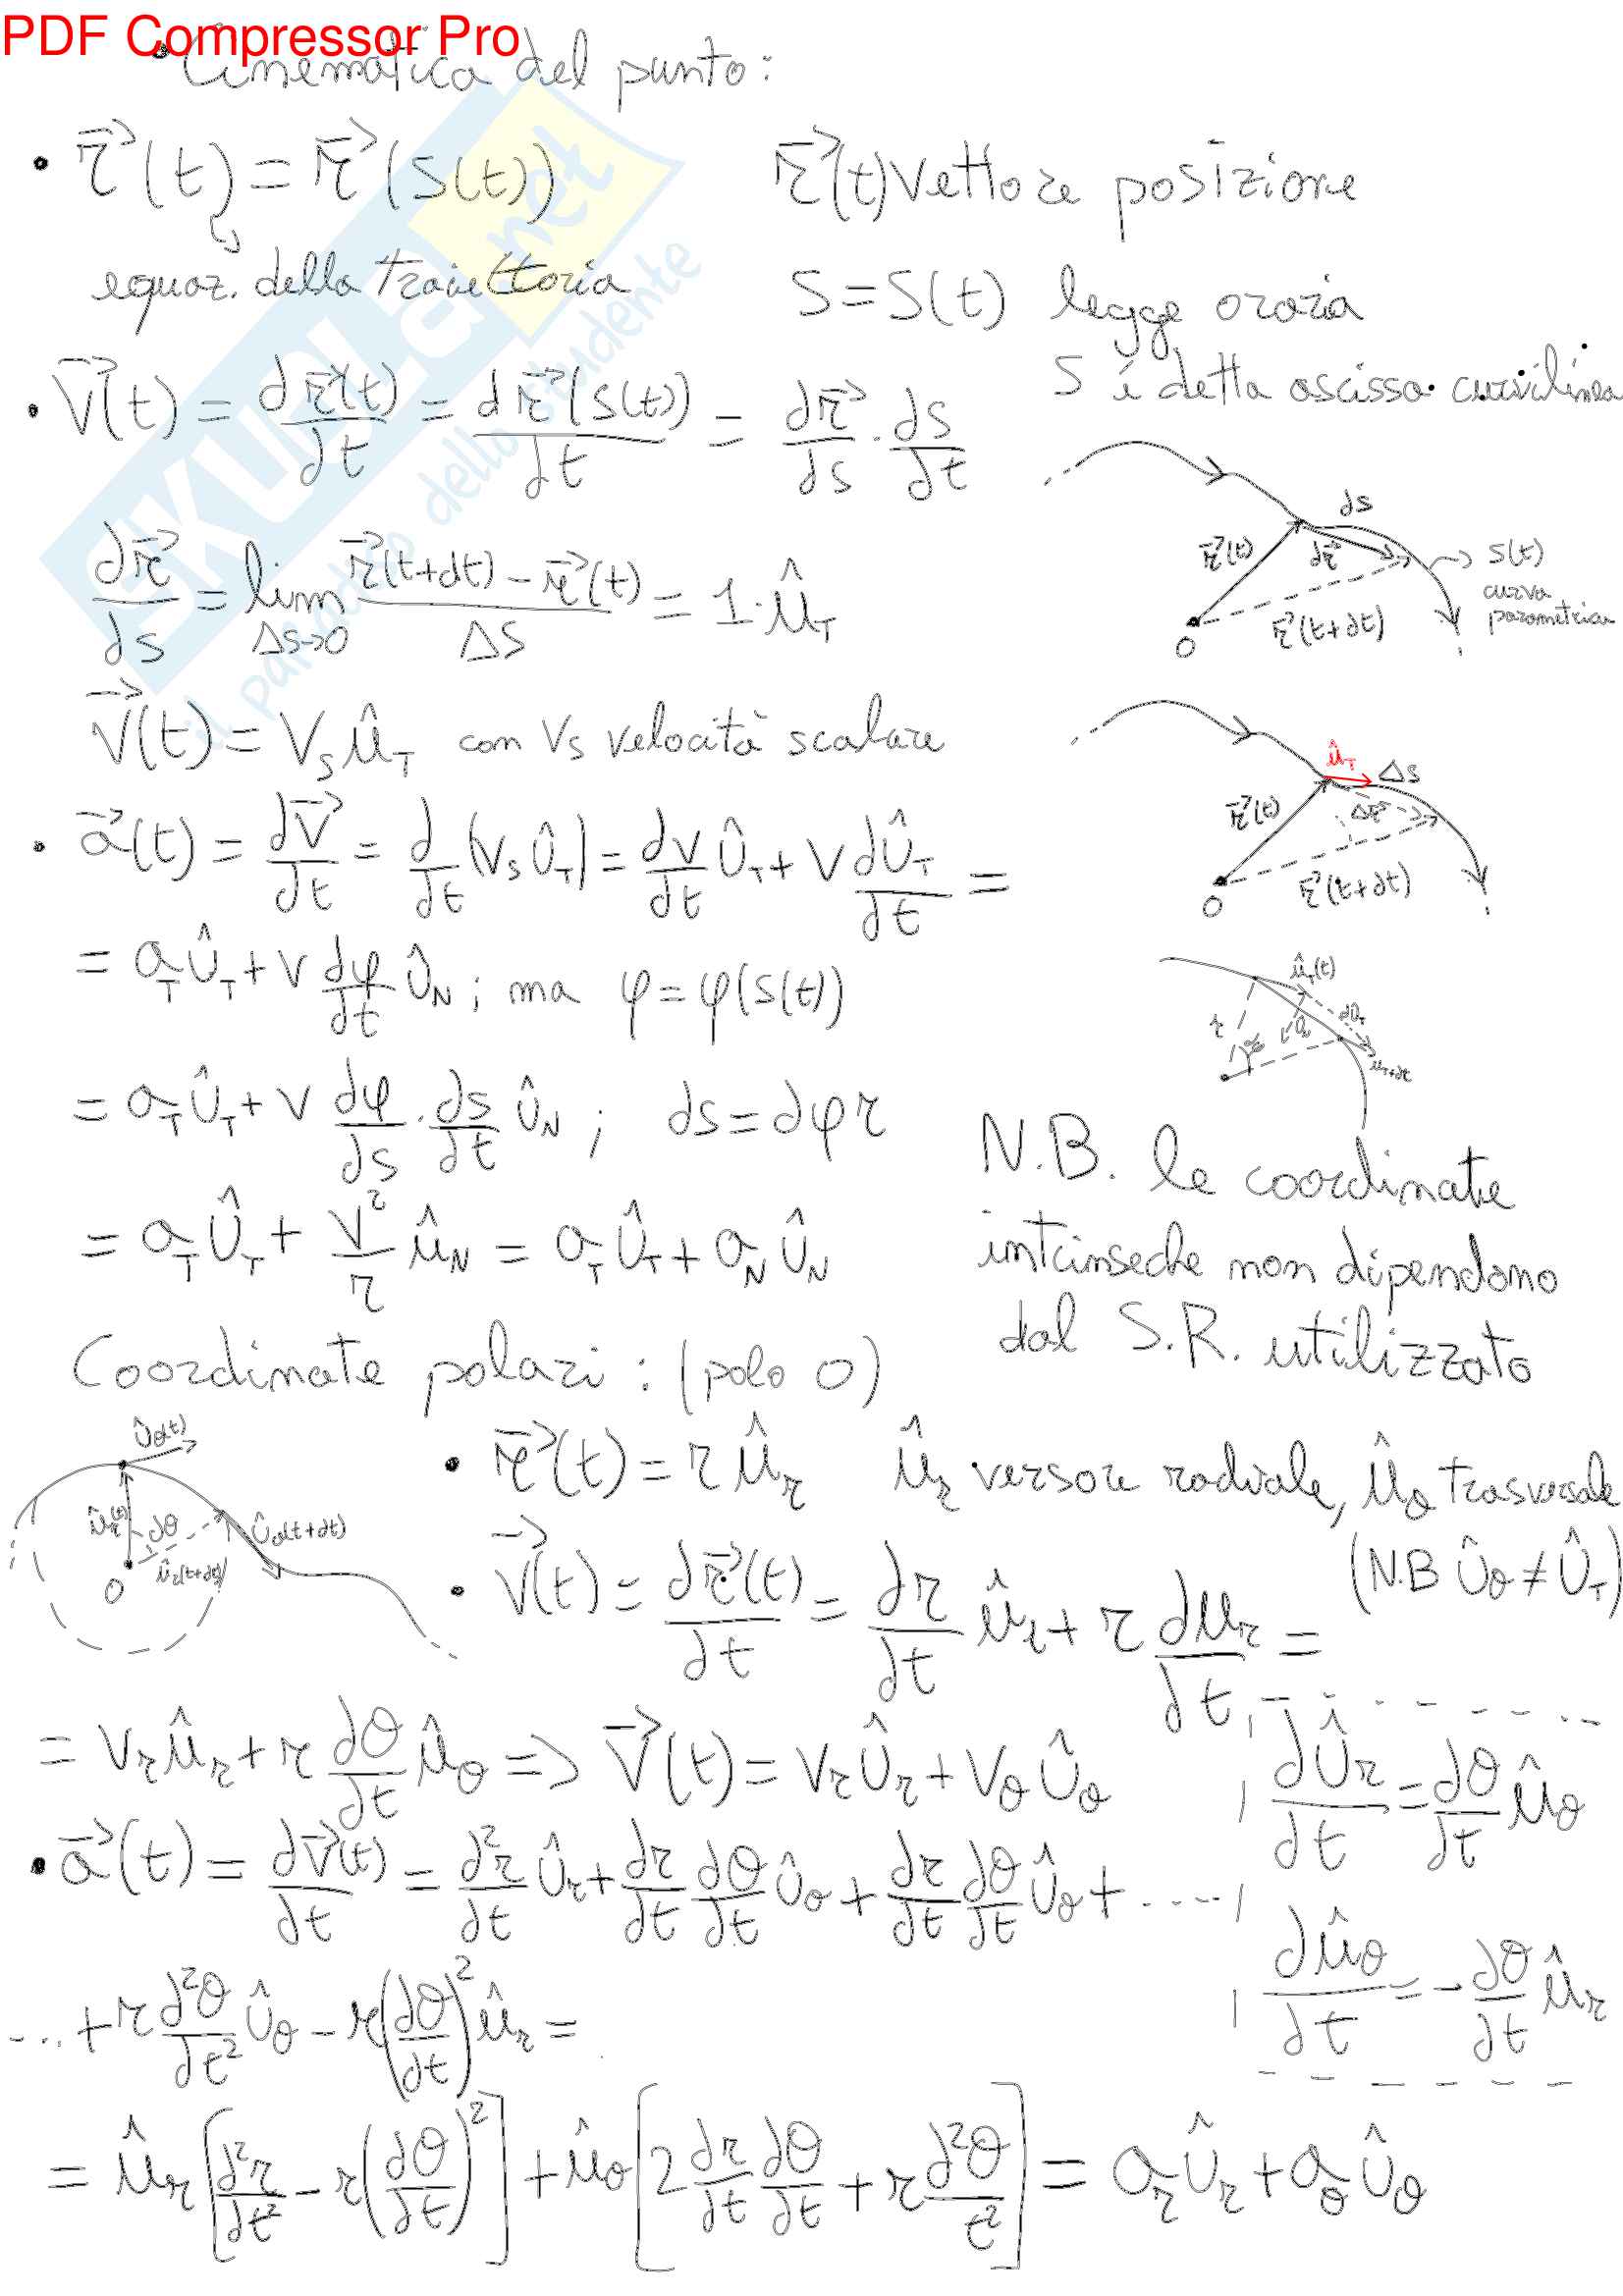 PDF Compressor Pro
• Cinematica del punto:
• r⃗(t) = r⃗(s(t))
r⃗(t) vettore posizione
equaz. della traiettoria
S = S(t) legge oraria
S è detta ascissa curvilinea
• v⃗(t) = dr⃗(t)/dt = dr⃗(s(t))/dt = dr⃗/ds · ds/dt
ds
r⃗(t)
dr⃗
s(t)
curva
parametrica
r⃗(t+dt)
O
dr⃗/ds = lim Δs→0 (r⃗(t+dt) - r⃗(t))/Δs = 1·û_T
v⃗(t) = v_s û_T con v_s velocità scalare
û_T
Δs
r⃗(t)
Δr⃗
r⃗(t+dt)
O
• a⃗(t) = dv⃗/dt = d/dt (v_s û_T) = dv/dt û_T + v dû_T/dt =
= a_T û_T + v dφ/dt û_N ; ma φ = φ(s(t))
û_T(t)
r
dû_T
= a_T û_T + v dφ/ds · ds/dt û_N ; ds = dφ r
N.B. le coordinate
intrinseche non dipendono
dal S.R. utilizzato
= a_T û_T + v²/r û_N = a_T û_T + a_N û_N
Coordinate polari : (polo O)
û_θ(t)
û_r(t)
dθ
û_θ(t+dt)
û_r(t+dt)
O
• r⃗(t) = r û_r û_r versore radiale, û_θ trasversale
(N.B û_θ ≠ û_T)
• v⃗(t) = dr⃗(t)/dt = dr/dt û_r + r du_r/dt =
= v_r û_r + r dθ/dt û_θ => v⃗(t) = v_r û_r + v_θ û_θ
dû_r/dt = dθ/dt û_θ
• a⃗(t) = dv⃗(t)/dt = d²r/dt û_r + dr/dt dθ/dt û_θ + dr/dt dθ/dt û_θ + ....
dû_θ/dt = - dθ/dt û_r
... + r d²θ/dt² û_θ - r(dθ/dt)² û_r =
= û_r [d²r/dt² - r(dθ/dt)²] + û_θ [2 dr/dt dθ/dt + r d²θ/t²] = a_r û_r + a_θ û_θ
SKUOLA.net
il paradiso dello studente